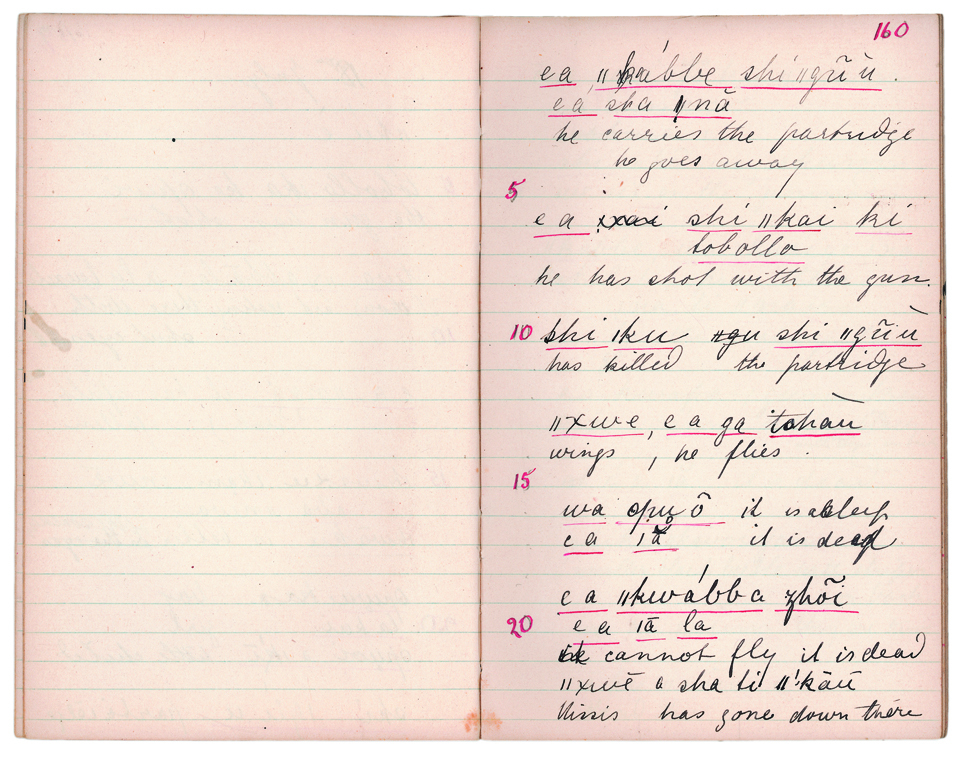 160
ea, ǁkábbe shi ǁgũ̄ù.
ea sha ǁnā
he carries the partridge
he goes away
5
ea shi ǁkai ki
tobollo
he has shot with the gun.
10 shi ǀku shi ǁgũ̄ù
has killed the partridge
ǁxwe, e a ga tshàu
wings, he flies.
15
wa ô it is asleep
e a ǀā it is dead
e a ǁkwábba zhõi
20 e a ǀā la
cannot fly it is dead
ǁxwē a sha ti ǁ'kāū
has gone down there